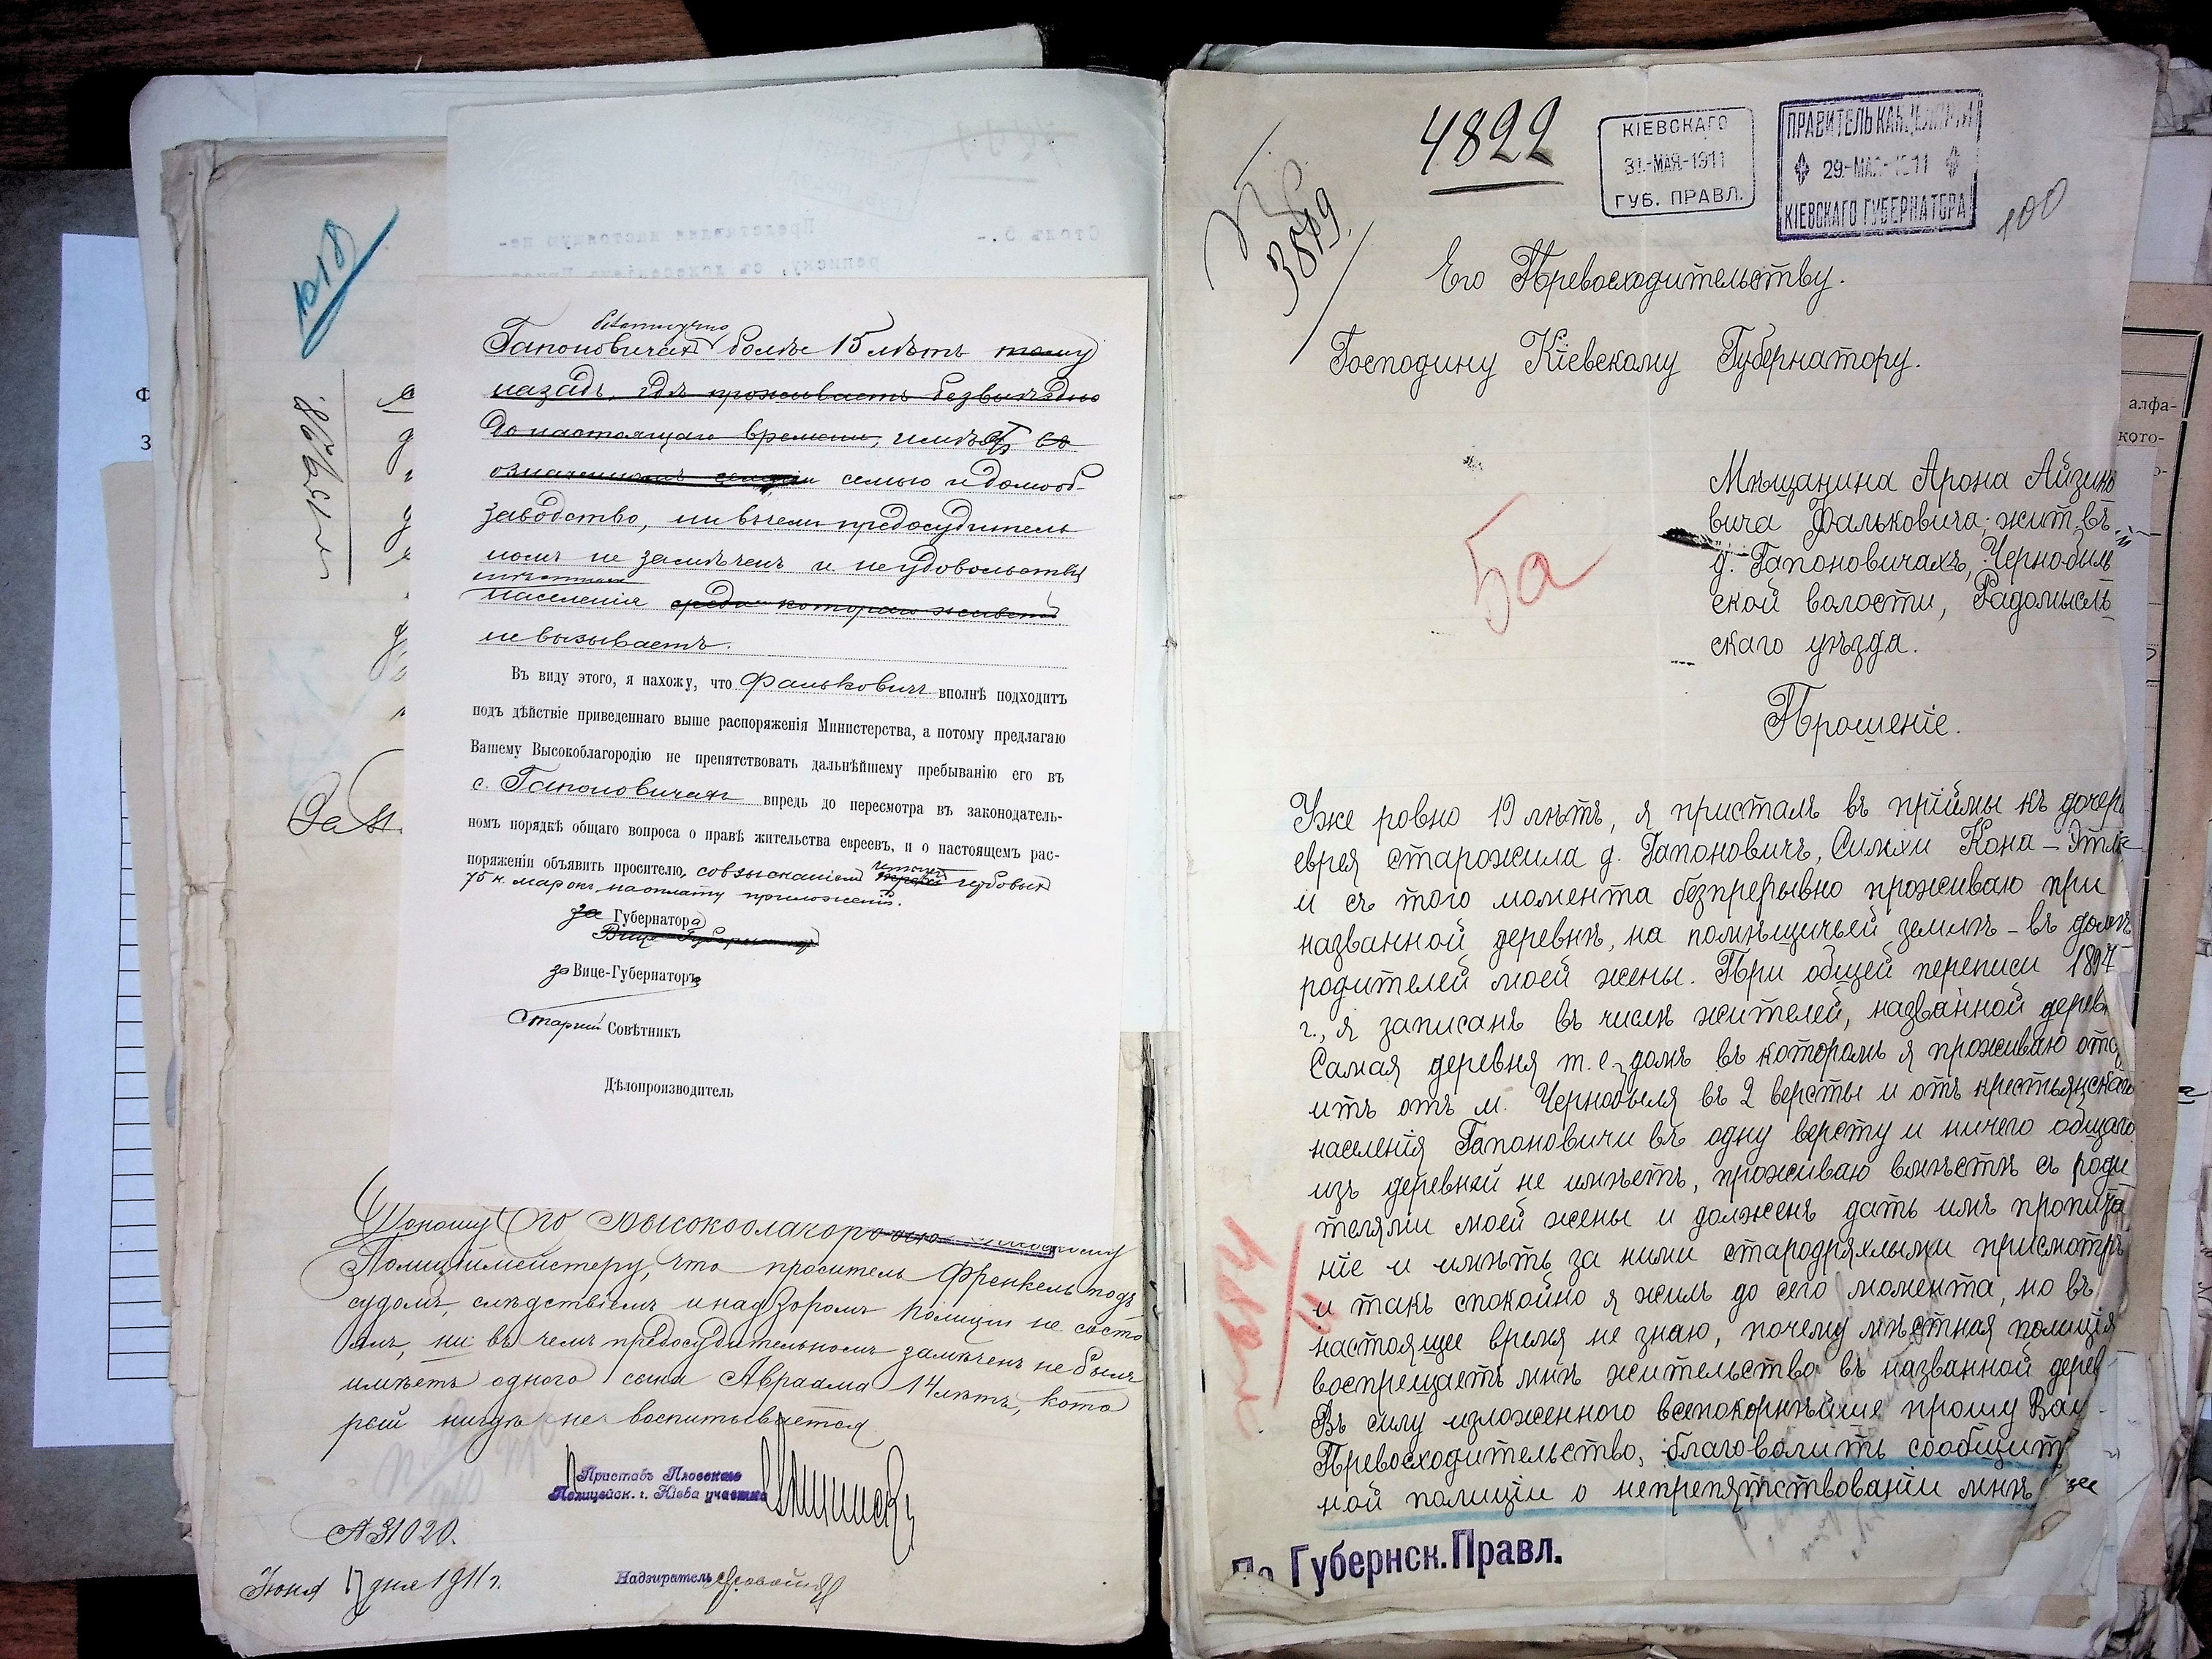 1018
Гапоновичах болѣе 15 лѣтъ тому
назадъ, гдѣ проживаетъ безвыѣздно
до настоящаго времени, имѣетъ въ
означенномъ селеніи семью и домооб-
заводство, ни въ чемъ предосудитель
номъ не замѣченъ и неудовольствія
населенія среди котораго живетъ
не вызываетъ.
Въ виду этого, я нахожу, что Фальковичъ вполнѣ подходитъ
подъ дѣйствіе приведеннаго выше распоряженія Министерства, а потому предлагаю
Вашему Высокоблагородію не препятствовать дальнѣйшему пребыванію его въ
с. Гапоновичахъ впредь до пересмотра въ законодатель-
номъ порядкѣ общаго вопроса о правѣ жительства евреевъ, и о настоящемъ рас-
поряженіи объявить просителю, со взысканіемъ гербовых
75 к. марокъ на оплату приложенія.
за Губернатора
Вице-Губернаторъ
за Вице-Губернатора
Старший Совѣтникъ
Дѣлопроизводитель
Доношу Его Высокоблагородію
Полиціймейстеру, что проситель Френкель подъ
судомъ, слѣдствіемъ и надзоромъ полиціи не состо
ялъ, ни въ чемъ предосудительномъ замѣченъ не былъ
имѣетъ одного сына Авраама 14 лѣтъ, кото
рый нигдѣ не воспитывается
Приставъ Плоскаго
Полицейск. г. Кіева участка
№ 31020.
Іюня 17 дня 1911 г.
Надзиратель
4822
КІЕВСКАГО
31-МАЯ-1911
ГУБ. ПРАВЛ.
ПРАВИТЕЛЬ КАНЦЕЛЯРІИ
29-МАЯ-1911
КІЕВСКАГО ГУБЕРНАТОРА
100
Его Превосходительству.
Господину Кіевскому Губернатору.
5а
Мѣщанина Арона Айзико
вича Фальковича, жит. въ
д. Гапоновичахъ, Чернобыль
ской волости, Радомысль
скаго уѣзда.
Прошеніе.
Уже ровно 19 лѣтъ, я присталъ въ пріймы къ дочер
еврея старожила д. Гапоновичъ, Симхи Кона – Этлѣ
и съ того момента безпрерывно проживаю при
названной деревнѣ, на помѣщичьей землѣ – въ домѣ
родителей моей жены. При общей переписи 1897
г., я записанъ въ числѣ жителей, названной дерев
Самая деревня т. е. домъ въ которомъ я проживаю отсо
итъ отъ м. Чернобыля въ 2 версты и отъ крестьянскаго
населенія Гапоновичи въ одну версту и ничего общаго
изъ деревней не имѣетъ, проживаю вмѣстѣ съ роди
телями моей жены и долженъ дать имъ пропита
ніе и имѣть за ними стародряхлыми присмотръ
и такъ спокойно я жилъ до сего момента, но въ
настоящее время не знаю, почему мѣстная полиція
воспрещаетъ мнѣ жительство въ названной дерев
Въ силу изложенного всепокорнѣйше прошу Ваш
Превосходительство, благоволить сообщить
ной полиціи о непрепятствованіи мнѣ
По Губернск. Правл.
алфа-
кото-